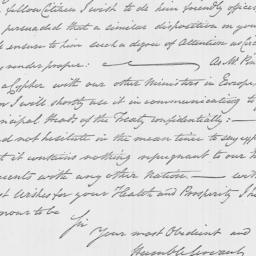 fellow Citizen I wish to do him friendly offices
persuaded that a similar disposition in you
ensure to him such a degree of Attention as Circ
render proper: — As Mr. Pin
a Cypher with our other Ministers in Europe
I will shortly use it in communicating to
cipal Heads of the Treaty confidentially: —
not hesitate in the mean time to say
it contains nothing repugnant to our
with any other Nation. —
Wishes for your Health and Prosperity I h
onour to be
Sir
Your most Obedient and
Humble Servant